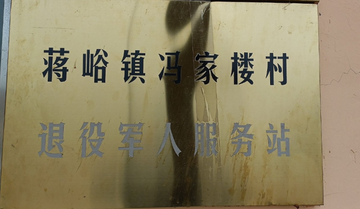 蒋峪镇冯家楼村
退役军人服务站